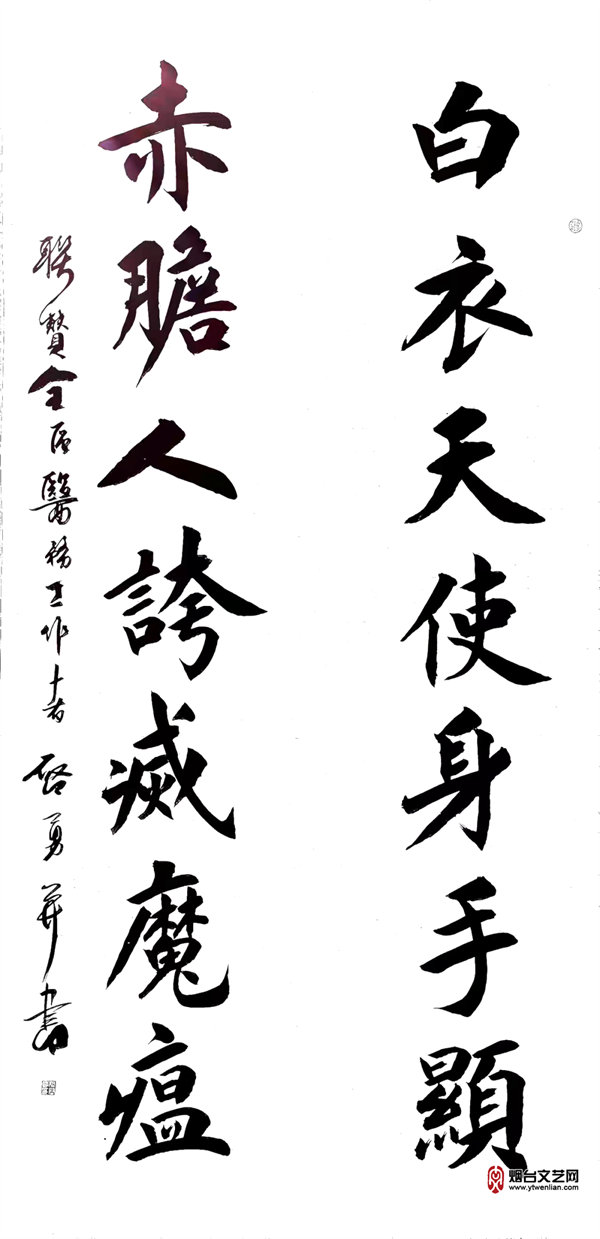 白衣天使身手顯
赤膽人誇滅魔瘟
聯贊全區醫務工作者 啓勇并書
烟台文艺网
www.ytwenlian.com